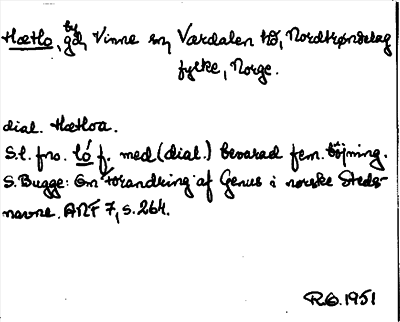 Hætlo, by gd, Vinne sn, Værdalen hd, Nordtrøndelag
fylke, Norge.
dial. Hætloa.
S.l. fno. ló f. med (dial.) bevarad fem. böjning.
S. Bugge: Om Forandring af Genus i norske Steds-
navne. ANF 7, s. 264.
R.O. 1951